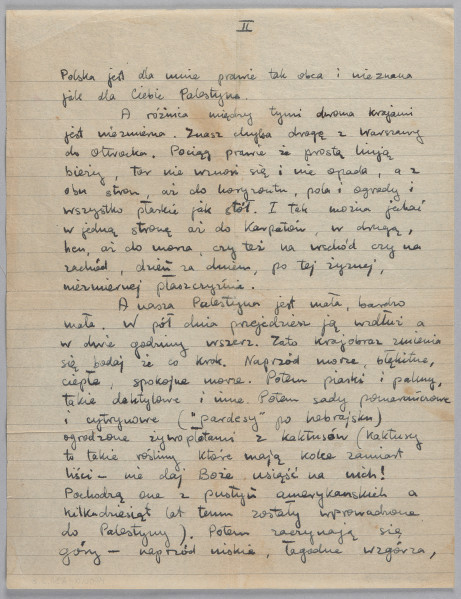 II
Polska jest dla mnie prawie tak obca i nieznana
jak dla Ciebie Palestyna.
A różnica między tymi dwoma krajami
jest niezmierna. Znasz chyba drogę z Warszawy
do Otwocka. Pociąg prawie że prostą linją
bieży, tor nie wznosi się i nie opada, a z
obu stron, aż do horyzontu, pola i ogrody i
wszystko płaskie jak stół. I tak można jechać
w jedną stronę aż do Karpatów, w drugą,
hen, aż do morza, czy też na wschód czy na
zachód, dzień za dniem, po tej żyznej,
niezmiernej płaszczyźnie.
A nasza Palestyna jest mała, bardzo
mała. W pół dnia przejedziesz ją wzdłuż a
w dwie godziny wszerz. Zato krajobraz zmienia
się bodaj że co krok. Naprzód morze, błękitne,
ciepłe, spokojne morze. Potem piaski i palmy,
takie daktylowe i inne. Potem sady pomarańczowe
i cytrynowe ("pardesy" po hebrajsku)
ogrodzone żywopłotami z kaktusów (kaktusy
to takie rośliny które mają kolce zamiast
liści - nie daj Boże usiąść na nich!
Pochodzą one z pustyń amerykańskich a
kilkadziesiąt lat temu zostały wprowadzone
do Palestyny). Potem zaczynają się
góry - naprzód niskie, łagodne wzgórza,